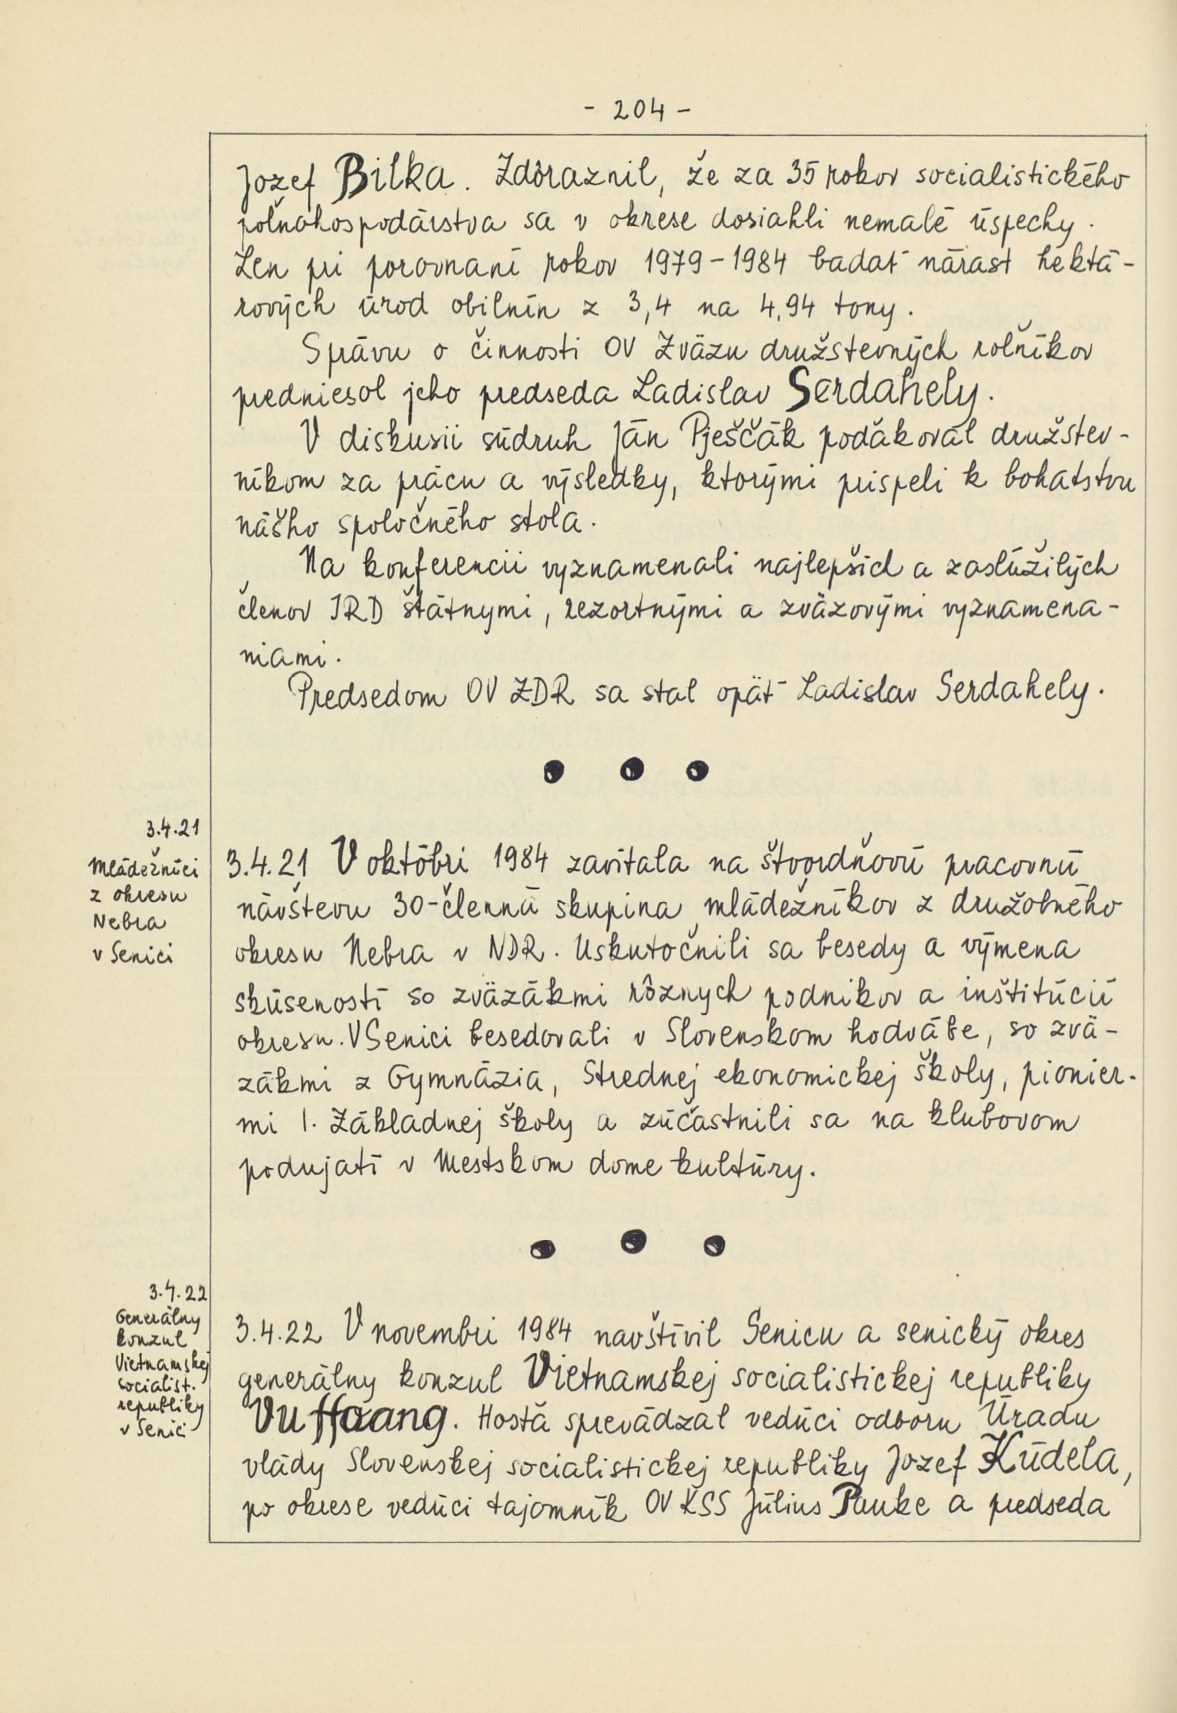 - 204 -
Jozef Bilka. Zdôraznil, že za 35 rokov socialistického
poľnohospodárstva sa v okrese dosiahli nemalé úspechy.
Len pri porovnaní rokov 1979-1984 badať nárast hektá-
rových úrod obilnín z 3,4 na 4,94 tony.
Správu o činnosti OV Zväzu družstevných roľníkov
predniesol jeho predseda Ladislav Serdahely.
V diskusii súdruh Ján Pješčák poďakoval družstev-
níkom za prácu a výsledky, ktorými prispeli k bohatstvu
nášho spoločného stola.
Na konferencii vyznamenali najlepších a zaslúžilých
členov JRD štátnymi, rezortnými a zväzovými vyznamena-
niami.
Predsedom OV ZDR sa stal opäť Ladislav Serdahely.
3.4.21
Mládežníci
z okresu
Nebra
v Senici
3.4.21 V októbri 1984 zavítala na štvordňovú pracovnú
návštevu 30-členná skupina mládežníkov z družobného
okresu Nebra v NDR. Uskutočnili sa besedy a výmena
skúseností so zväzákmi rôznych podnikov a inštitúcií
okresu. V Senici besedovali v Slovenskom hodvábe, so zvä-
zákmi z Gymnázia, Strednej ekonomickej školy, pionier-
mi I. Základnej školy a zúčastnili sa na klubovom
podujatí v Mestskom dome kultúry.
3.4.22
Generálny
konzul
Vietnamskej
socialist.
republiky
v Senici
3.4.22 V novembri 1984 navštívil Senicu a senický okres
generálny konzul Vietnamskej socialistickej republiky
Vu . Hosťa sprevádzal vedúci odboru Úradu
vlády Slovenskej socialistickej republiky Jozef Kúdela,
po okrese vedúci tajomník OV KSS Július Pauke a predseda